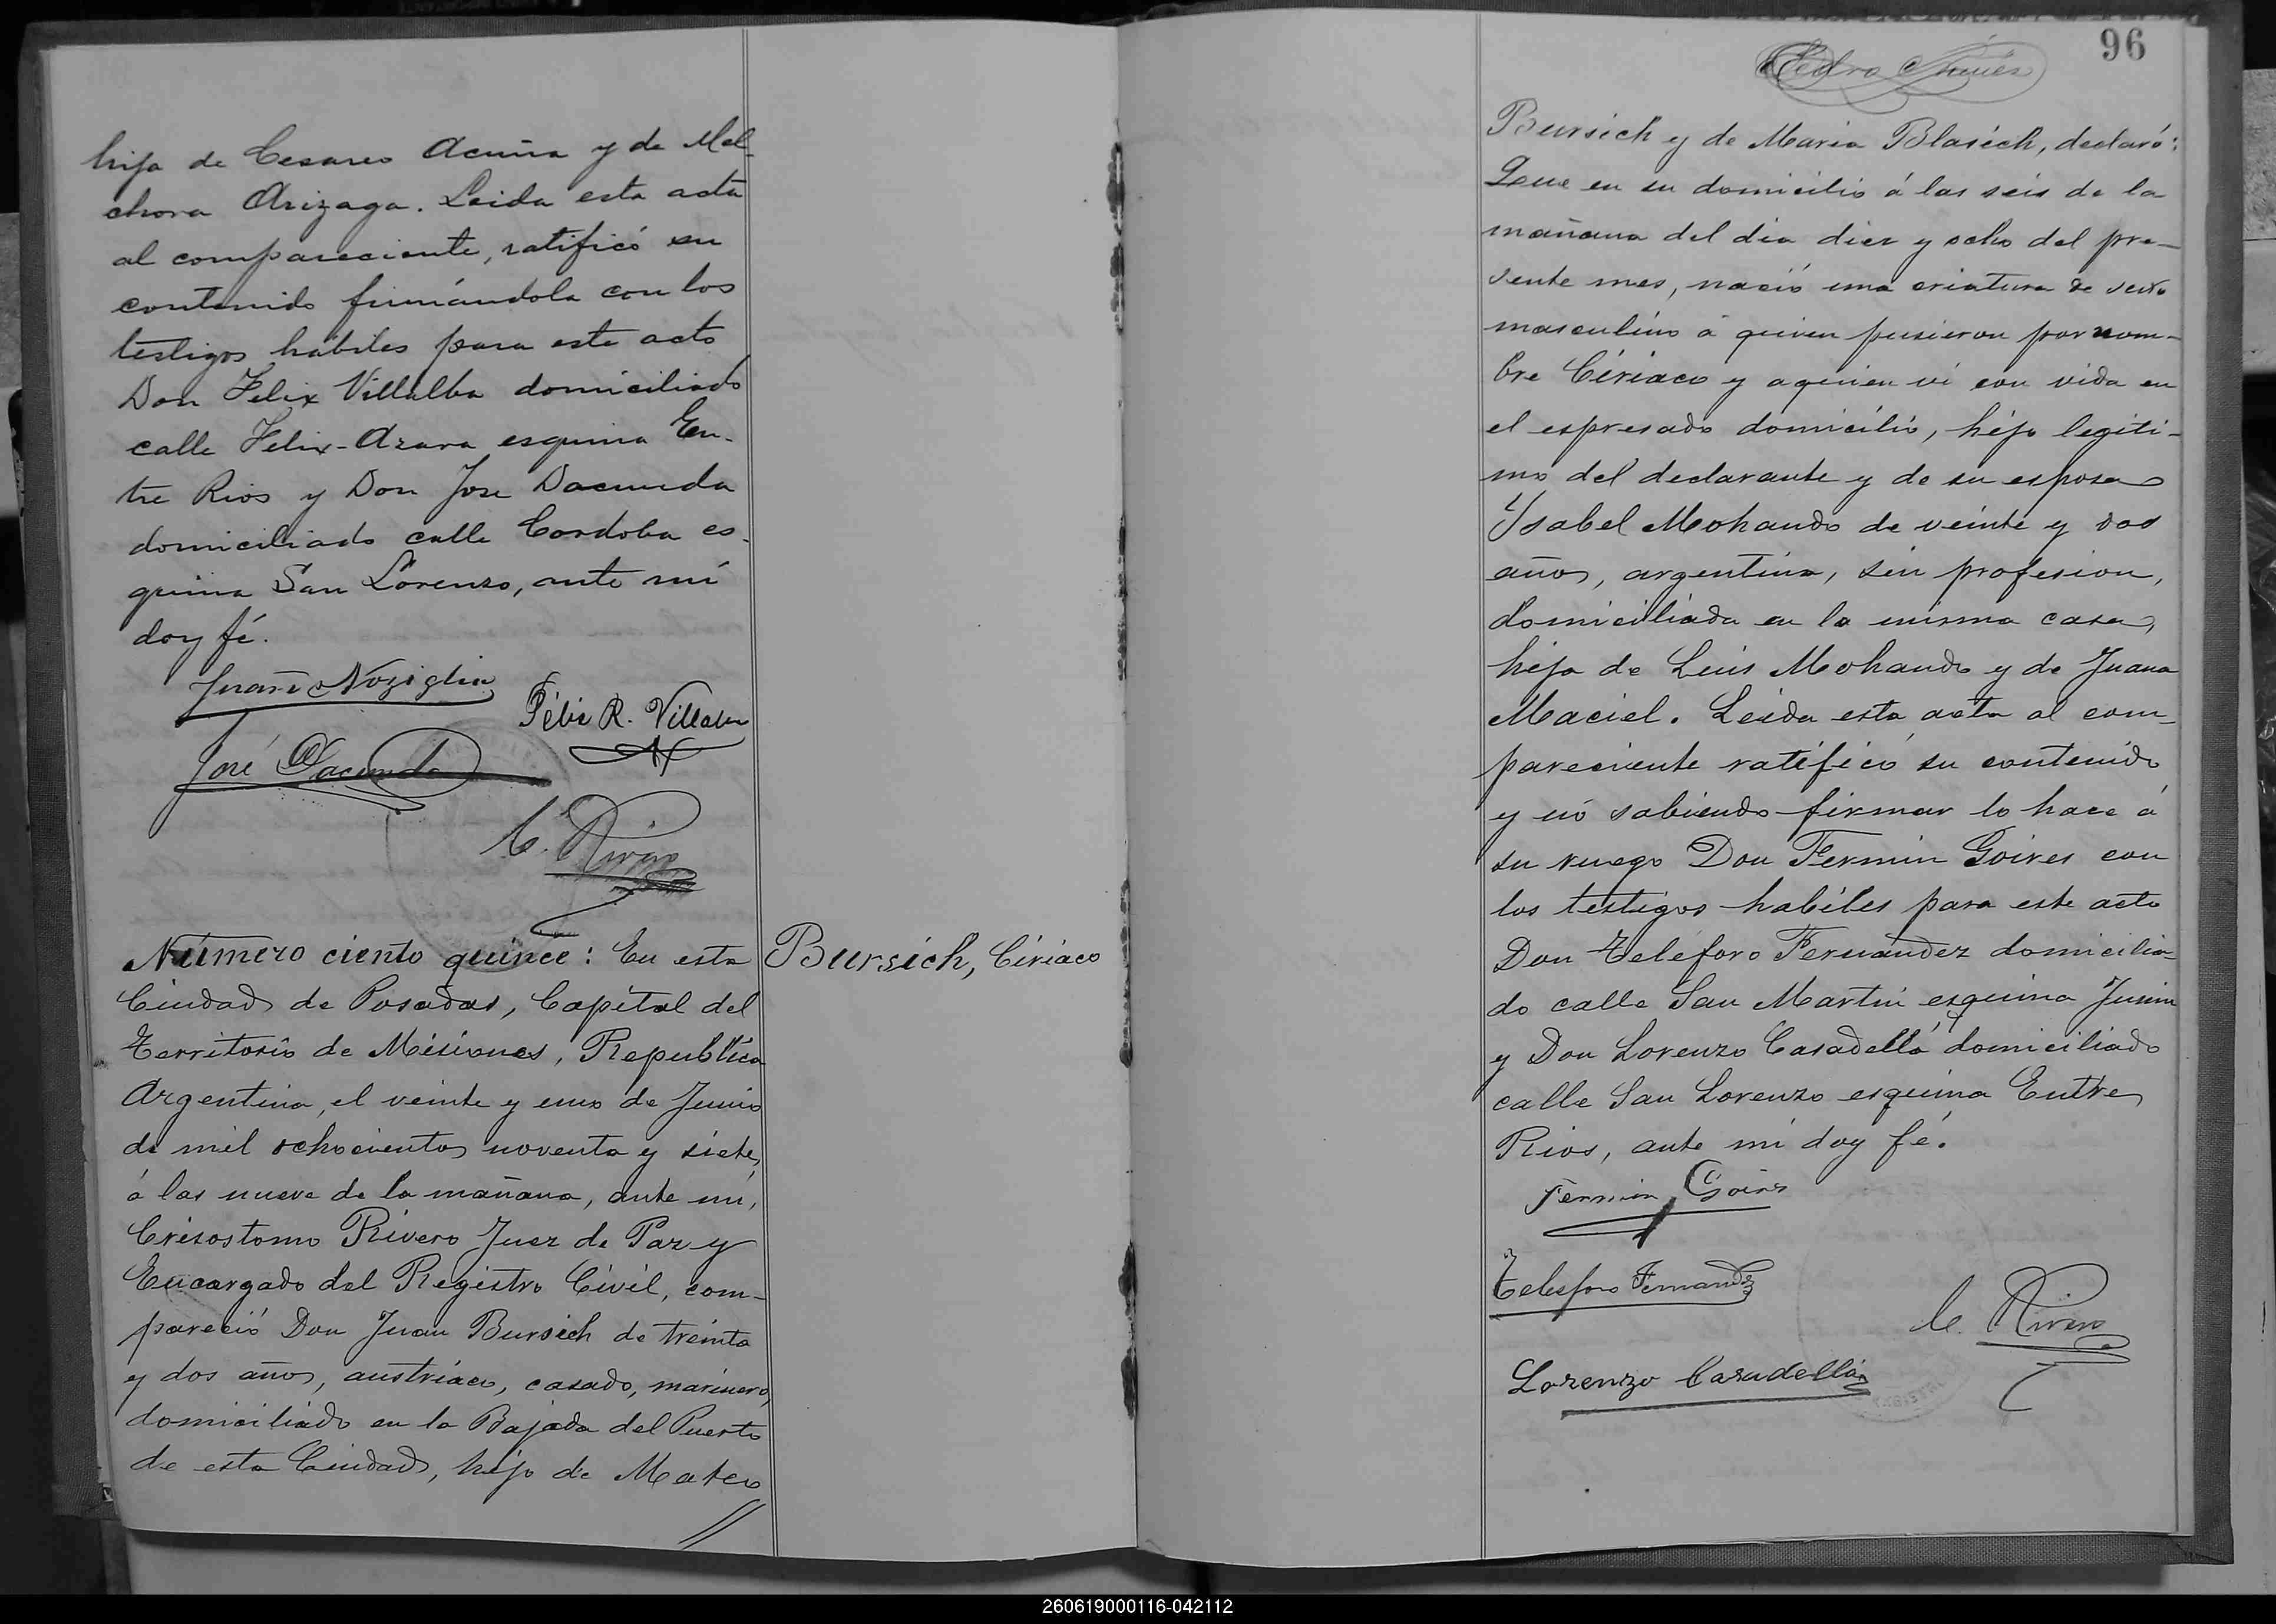 hija de Cesareo Acuña y de Mel-
chora Arizaga. Leida esta acta
al compareciente, ratificó su
contenido firmándola con los
testigos hábiles para este acto
Don Felix Villalba domiciliado
calle Felix-Azara esquina En-
tre Rios y Don Jose Dacunda
domiciliado calle Cordoba es-
quina San Lorenzo, ante mí
doy fé.
Juan Noziglia
Félix R. Villalba
José Dacunda
C. Rivero
Número ciento quince: En esta
Ciudad de Posadas, Capital del
Territorio de Misiones, Republica
Argentina, el veinte y uno de Junio
de mil ochocientos noventa y siete,
á las nueve de la mañana, ante mí,
Crisostomo Rivero Juez de Paz y
Encargado del Registro Civil, com-
pareció Don Juan Bursich de treinta
y dos años, austriaco, casado, marinero,
domiciliado en la Bajada del Puerto
de esta Ciudad, hijo de Mateo
//
Bursich, Ciriaco
96
Pedro
Bursich y de Maria Blasich, declaró:
Que en su domicilio á las seis de la
mañana del dia diez y ocho del pre-
sente mes, nació una criatura de sexo
masculino á quien pusieron por nom-
bre Ciriaco y a quien ví con vida en
el espresado domicilio, hijo legiti-
mo del declarante y de su esposa
Ysabel Mohando de veinte y dos
años, argentina, sin profesion,
domiciliada en la misma casa,
hija de Luis Mohando y de Juana
Maciel. Leida esta acta al com-
pareciente ratificó su contenido
y nó sabiendo firmar lo hace á
su ruego Don Fermin Goires con
los testigos habiles para este acto
Don Teleforo Fernandez domicilia-
do calle San Martin esquina Junin
y Don Lorenzo Casadellá domiciliado
calle San Lorenzo esquina Entre
Rios, ante mí doy fé.
Fermin Goires
Telesforo Fernandez
C. Rivero
Lorenzo Casadellá
260619000116-042112